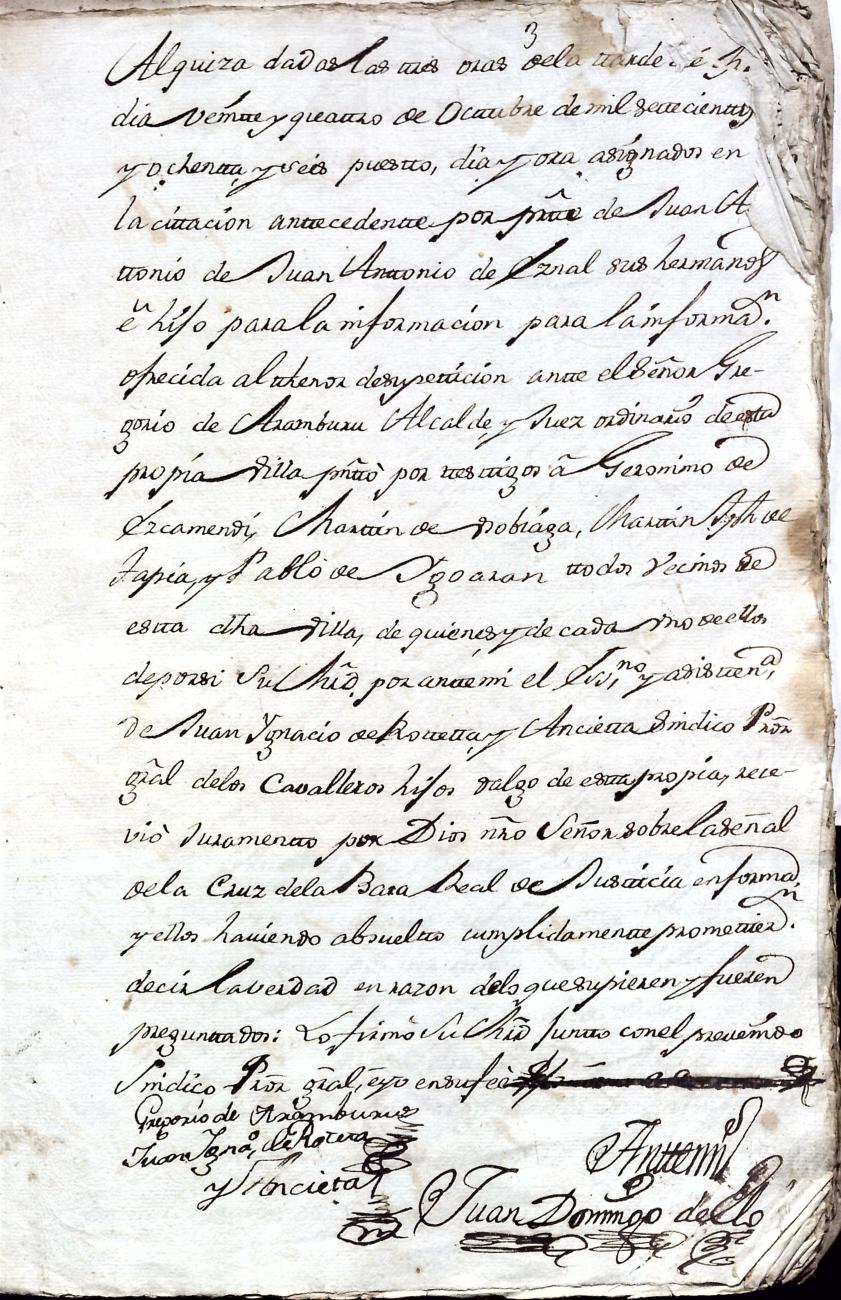 3
Alquiza dadas las ttres oras dela ttarde
dia veintte y quattro de Octtubre de mil settecientos
y ochentta, y seis puestto, dia y ora asignados en
la cittacion anttecedentte por prtte de Juan A
ttonio de Juan Anttonio de Eznal sus hermanos
é hijo para la informacion para la informan.
ofrecida al tthenor de su pettición antte el Señor Gre-
gorio de Aramburu Alcalde, y Juez ordinario de esta
propia villa pnttó por ttesttigos á Geronimo de
Ezcamendi, Marttin de Sobiaga, Marttin Jph de
Tapia, y Pablo de Ygoaran ttodos vecinos de
estta dha villa, de quienes y de cada vno de ellos
de por si Su Mrd por antte mi el Essno y asistena
de Juan Ygnacio de Rotetta, y Ancietta Sindico Pror
gral delos Cavalleros hijos dalgo de estta propia, rece-
vió Juramentto por Dios nro Señor sobre la señal
dela Cruz dela Bara Real de Justicia en forma
y ellos haviendo absueltto cumplidamentte promettiern.
decir la verdad en razon delo que supieren y fueren
pregunttados: Lo firmó Su Mrd Juntto con el prevenido
Sindico Pror gral, é yo en su feé
Gregorio de Aramburu
Juan Igno. de Roteta
y Ancieta
Anttemi
Juan Domingo de